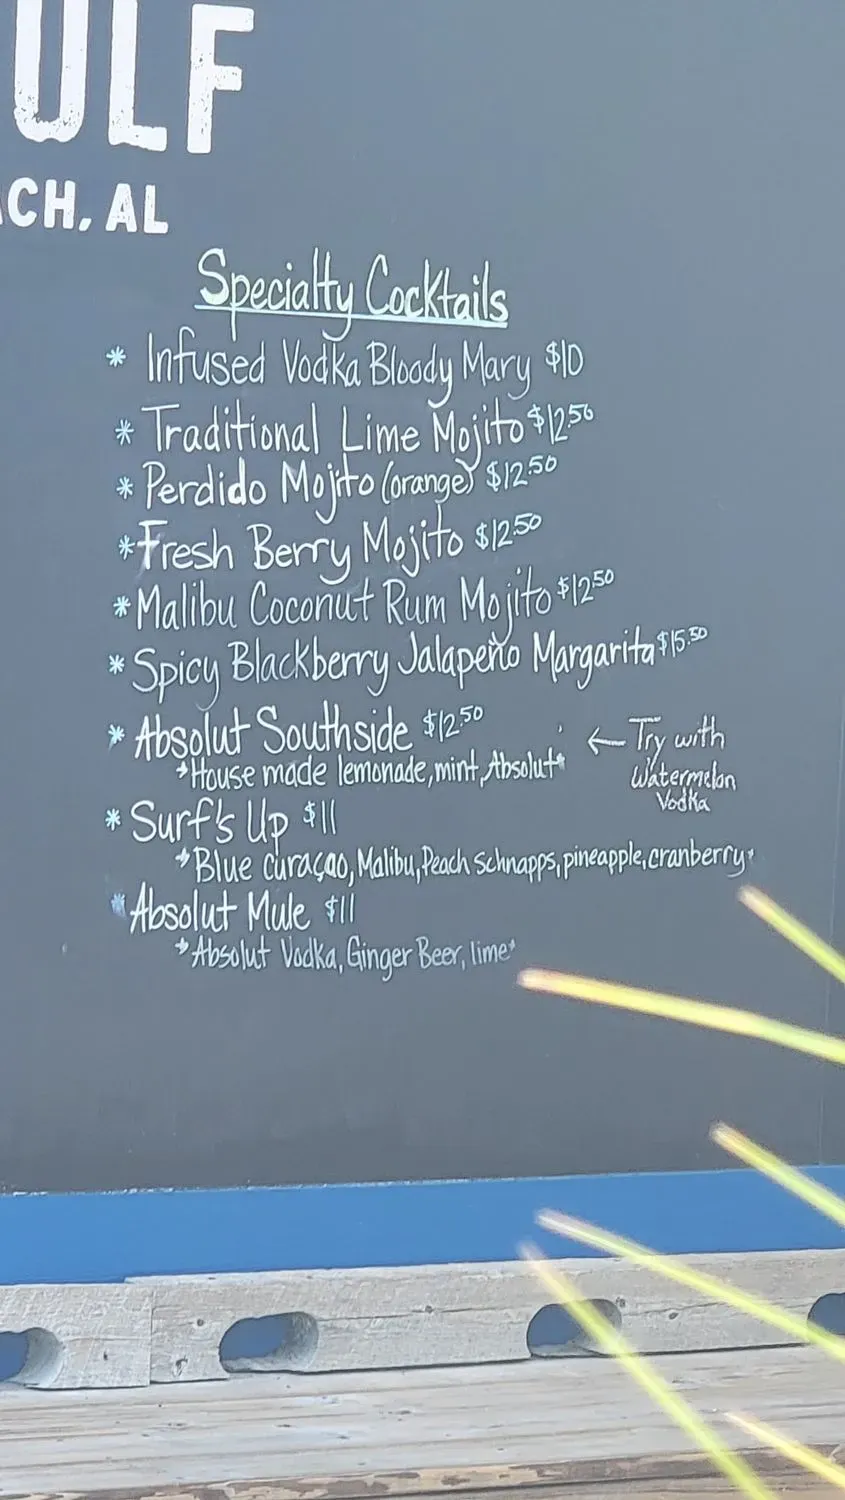 ULF
ACH, AL
Specialty Cocktails
* Infused Vodka Bloody Mary $10
* Traditional Lime Mojito $12.50
* Perdido Mojito (orange) $12.50
* Fresh Berry Mojito $12.50
* Malibu Coconut Rum Mojito $12.50
* Spicy Blackberry Jalapeño Margarita $15.50
* Absolut Southside $12.50
*House made lemonade, mint, Absolut*
← Try with
Watermelon
Vodka
* Surf's Up $11
*Blue curaçao, Malibu, Peach schnapps, pineapple, cranberry*
* Absolut Mule $11
*Absolut Vodka, Ginger Beer, lime*